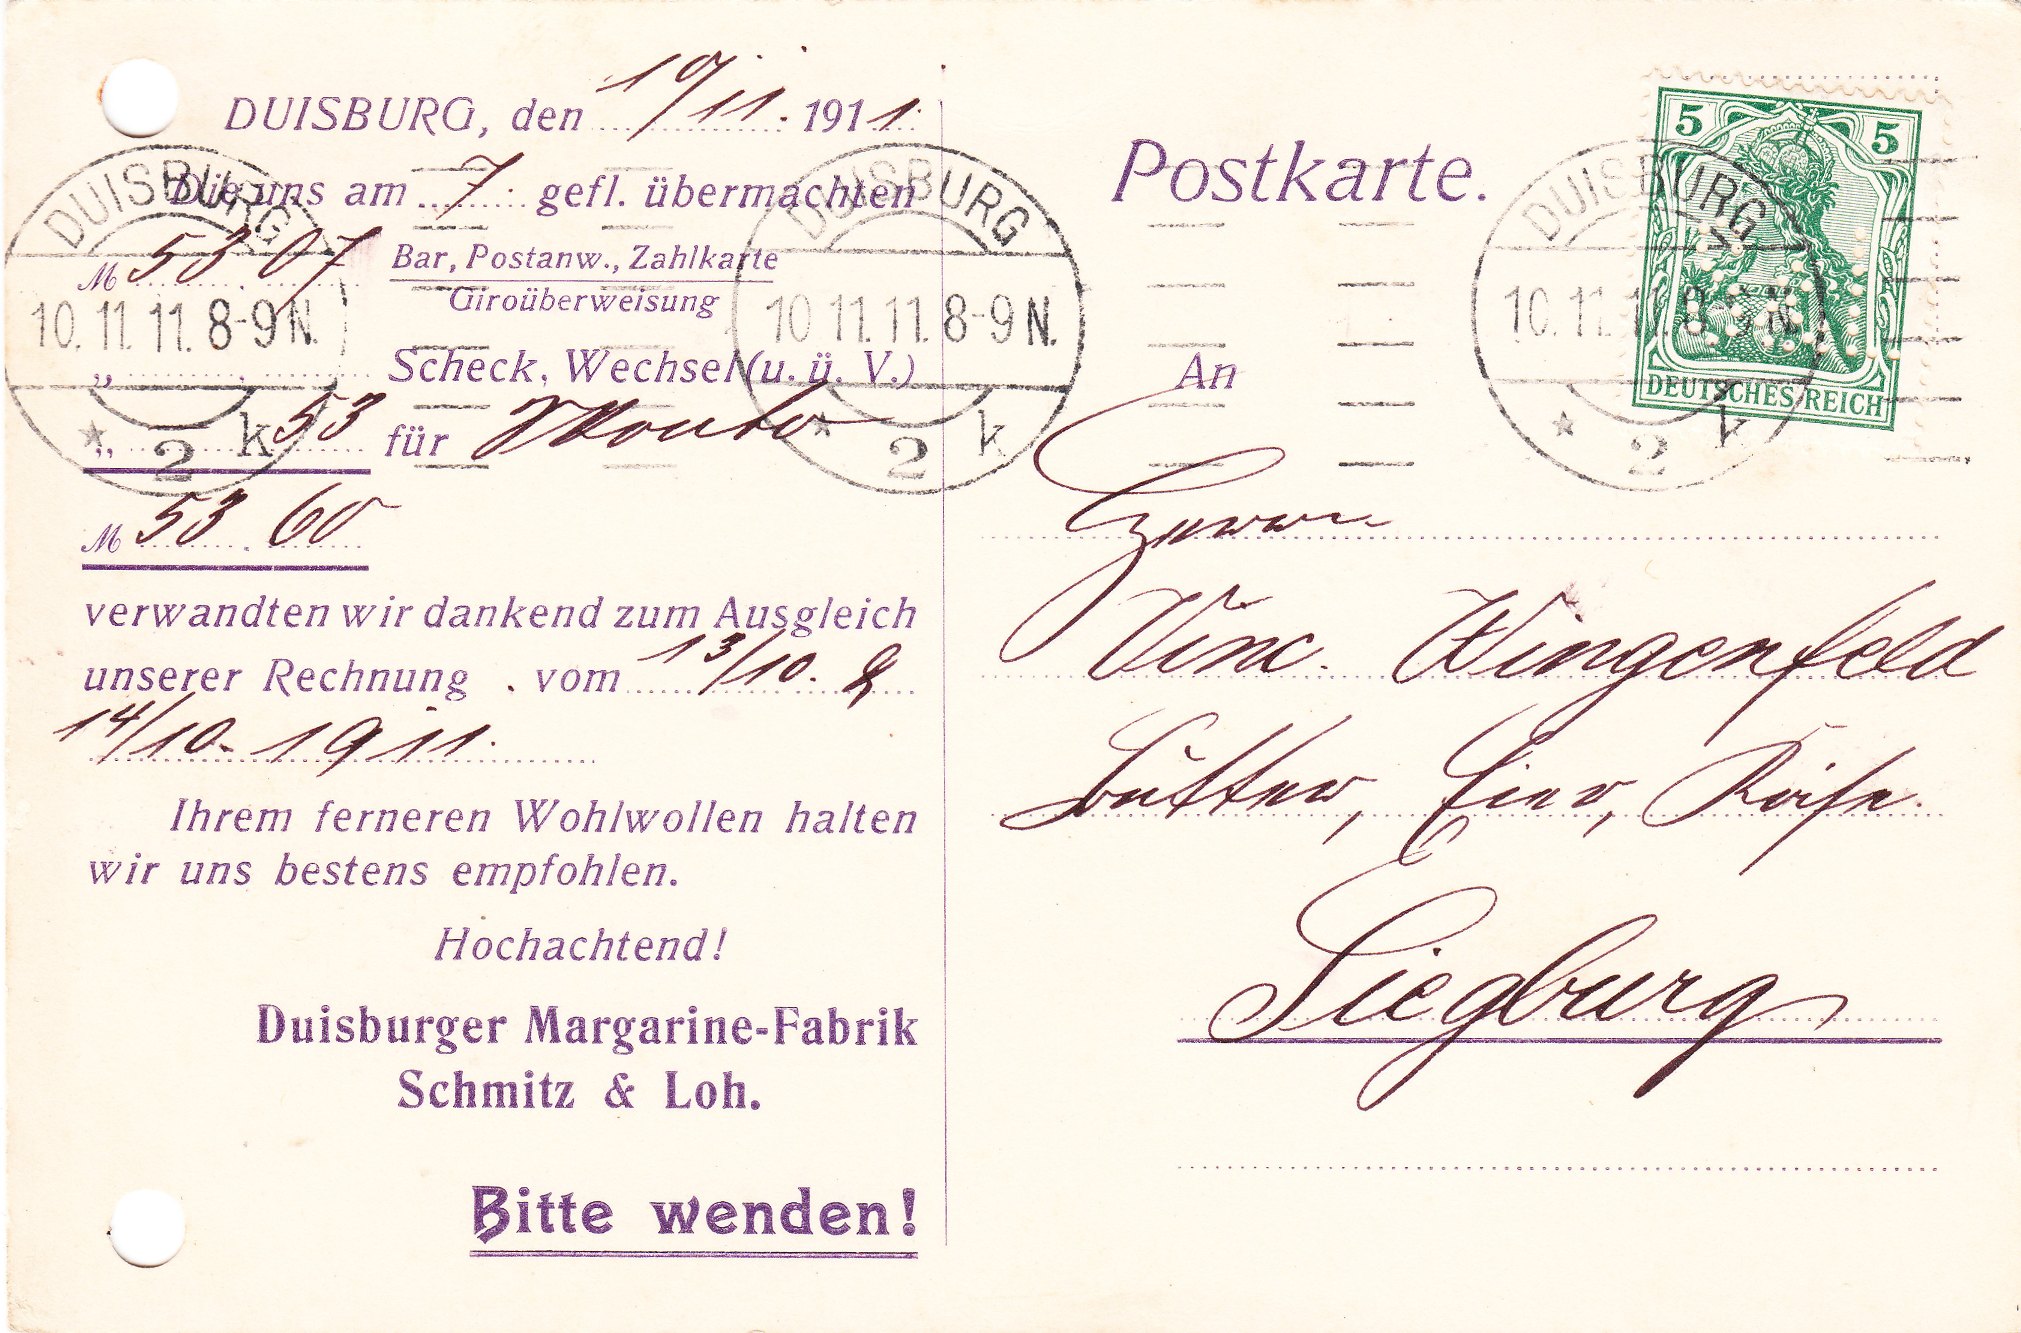 DUISBURG, den 10/11. 1911.
Die uns am 7. gefl. übermachten
M 53.07 Bar, Postanw., Zahlkarte
Giroüberweisung
„ Scheck, Wechsel (u. ü. V.)
„ 53 für
M 53.60
verwandten wir dankend zum Ausgleich
unserer Rechnung . vom 13/10. &
14/10. 1911.
Ihrem ferneren Wohlwollen halten
wir uns bestens empfohlen.
Hochachtend!
Duisburger Margarine-Fabrik
Schmitz & Loh.
Bitte wenden!
Postkarte.
An
Herrn
Vinc. Wingenfeld
Butter, Eier, Käse.
Siegburg
5 5
DEUTSCHES REICH
DUISBURG
10.11.11.8-9 N.
* 2 k
DUISBURG
10.11.11.8-9 N.
* 2 k
DUISBURG
10.11.11.8-9 N.
* 2 k